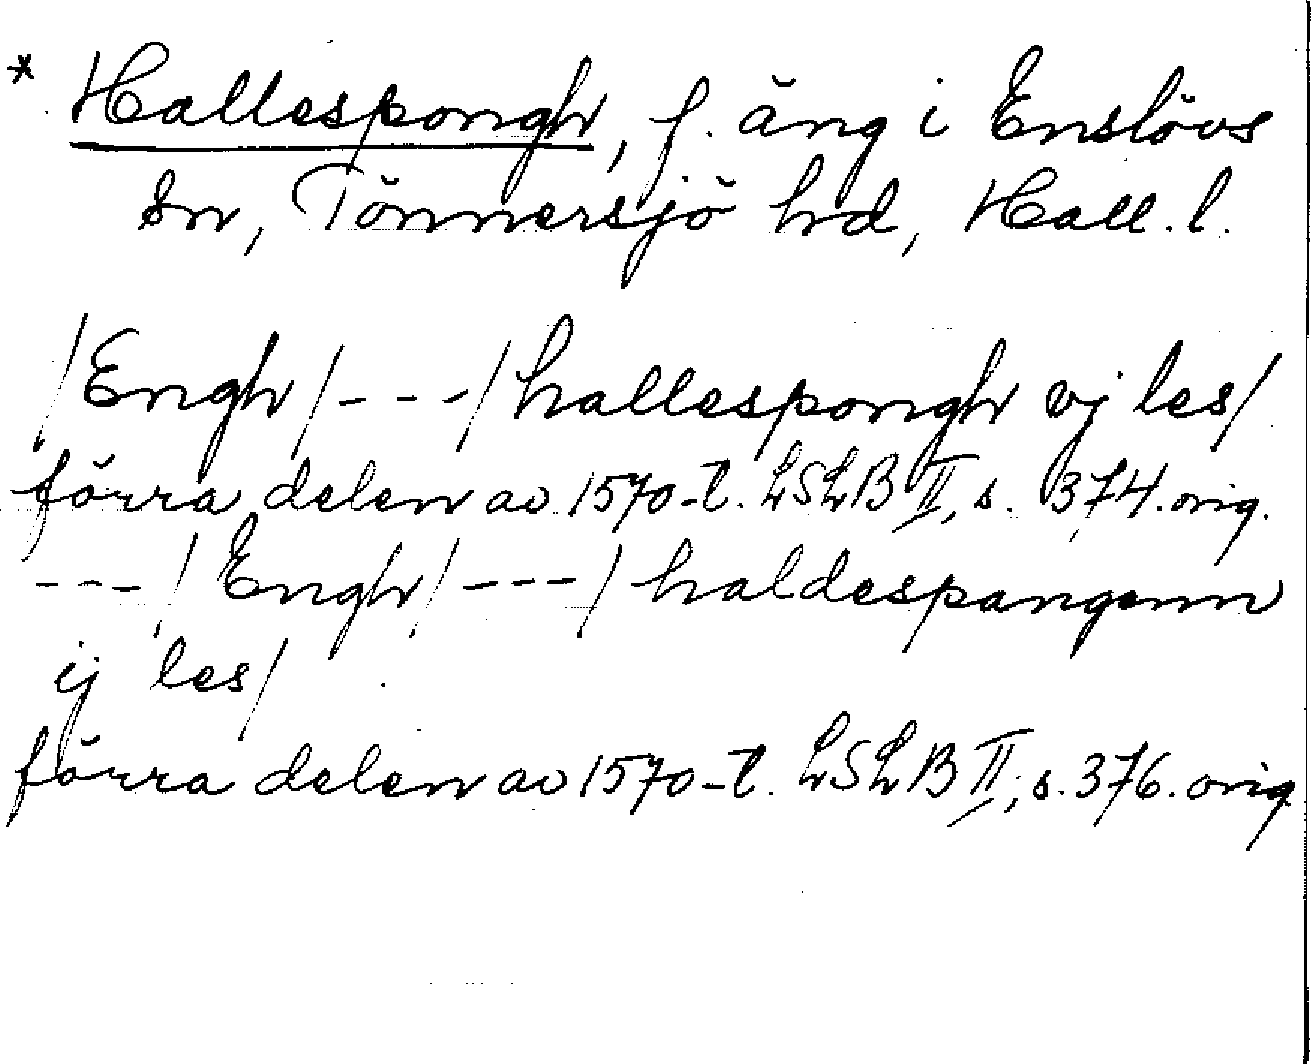 * Hallespongh, f. äng i Enslövs
sn, Tönnersjö hd, Hall. l.
/Engh/---/hallespongh vj les/
förra delen av 1570-t. LSLB II, s. 374. orig.
---/Engh/---/haldespangenn
ij les/
förra delen av 1570-t. LSLB II, s. 376. orig